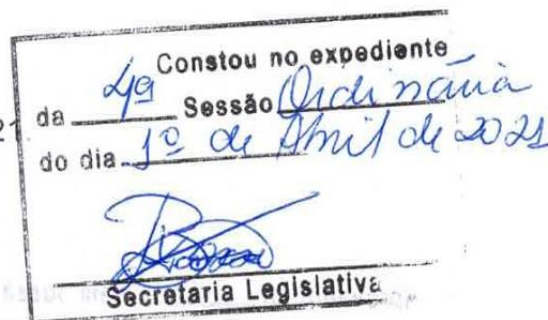 Constou no expediente
21 da 4ª Sessão Ordinária
do dia 1º de Abril de 2021
Secretaria Legislativa